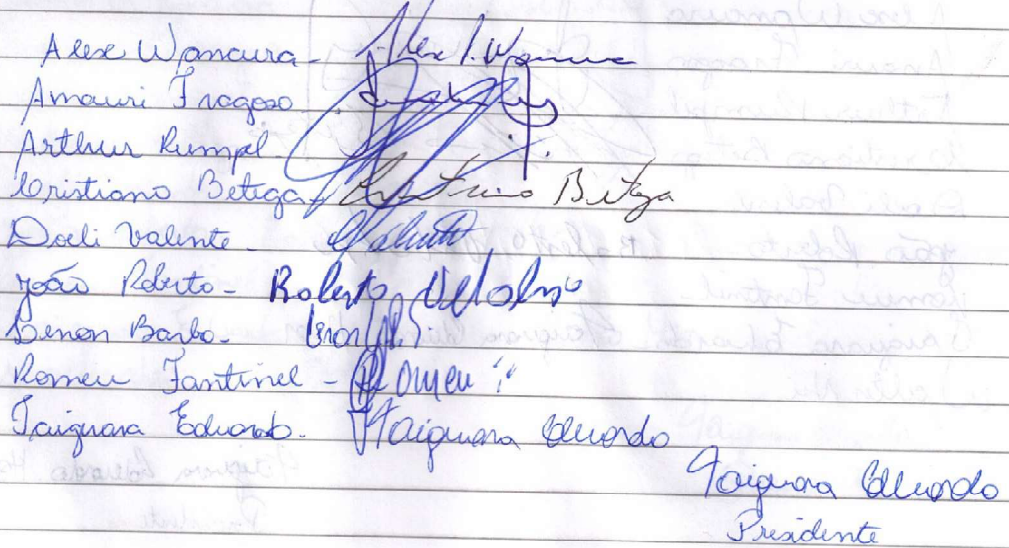 Alex Wanaura - Alex I. Wanaura
Amauri Fragoso
Arthur Rumpel
Cristiano Betega Cristiano Betega
Doeli Valente - Valente
João Roberto - Roberto
Lenon Barbo -
Romeu Fantinel - Romeu
Taiguara Eduardo - Taiguara Eduardo
Taiguara Eduardo
Presidente